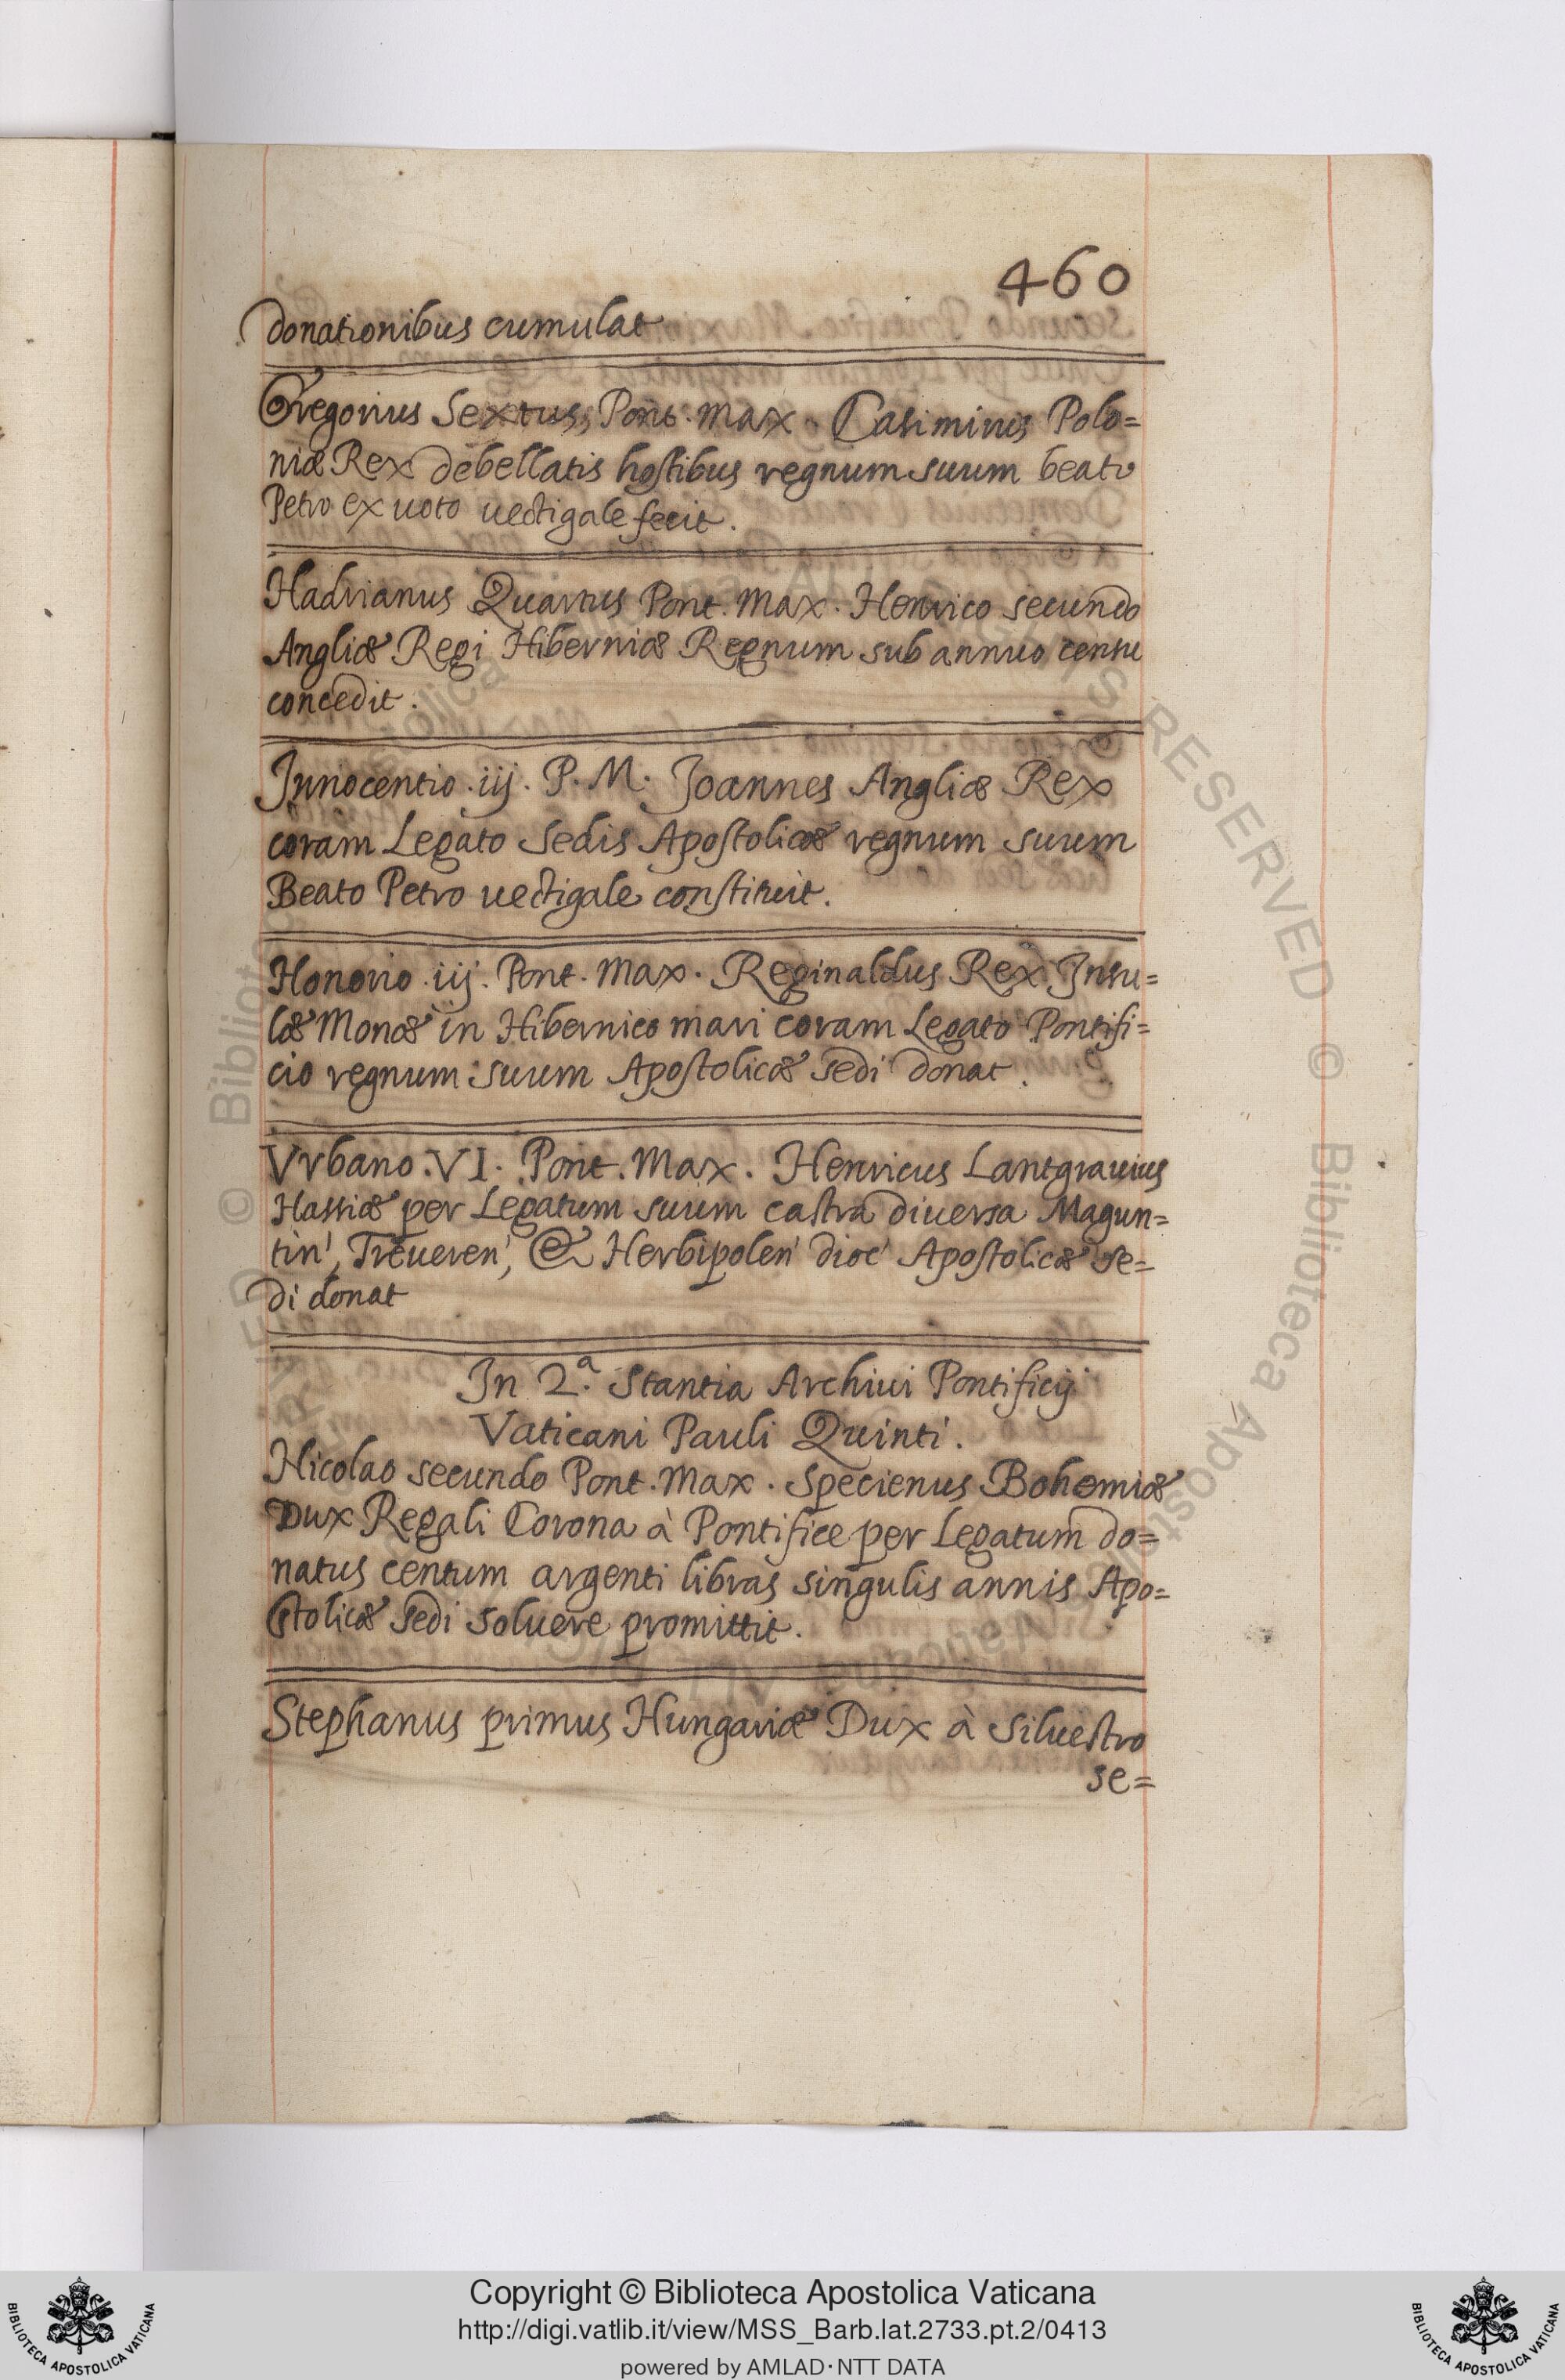 460
donationibus cumulat
Gregorius Sextus, Pont. Max. Casimirus Polo=
niæ Rex debellatis hostibus regnum suum beato
Petro ex uoto uectigale fecit.
Hadrianus Quartus Pont. Max. Henrico secundo
Angliæ Regi Hiberniæ Regnum sub annuo censu
concedit.
Innocentio .iij. P. M. Joannes Angliæ Rex
coram Legato Sedis Apostolicæ regnum suum
Beato Petro uectigale constituit.
Honorio .iij. Pont. Max. Reginaldus Rex Insu=
læ Monæ in Hibernico mari coram Legato Pontifi=
cio regnum suum Apostolicæ sedi donat.
Vrbano .VI. Pont. Max. Henricus Lantgrauius
Hassiæ per Legatum suum castra diuersa Magun=
tin', Treueren', & Herbipolen' dioc' Apostolicæ se=
di donat
In 2.ª Stantia Archiui Pontificij
Vaticani Pauli Quinti.
Nicolao secundo Pont. Max. Specienus Bohemiæ
Dux Regali Corona à Pontifice per Legatum do=
natus centum argenti libras singulis annis Apo=
stolicæ Sedi soluere promittit.
Stephanus primus Hungariæ Dux à Siluestro
se=
Copyright © Biblioteca Apostolica Vaticana
http://digi.vatlib.it/view/MSS_Barb.lat.2733.pt.2/0413
powered by AMLAD·NTT DATA
BIBLIOTECA APOSTOLICA VATICANA
BIBLIOTECA APOSTOLICA VATICANA